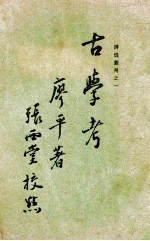 辨偽叢刊之一
古學考
廖平著
張西堂校點